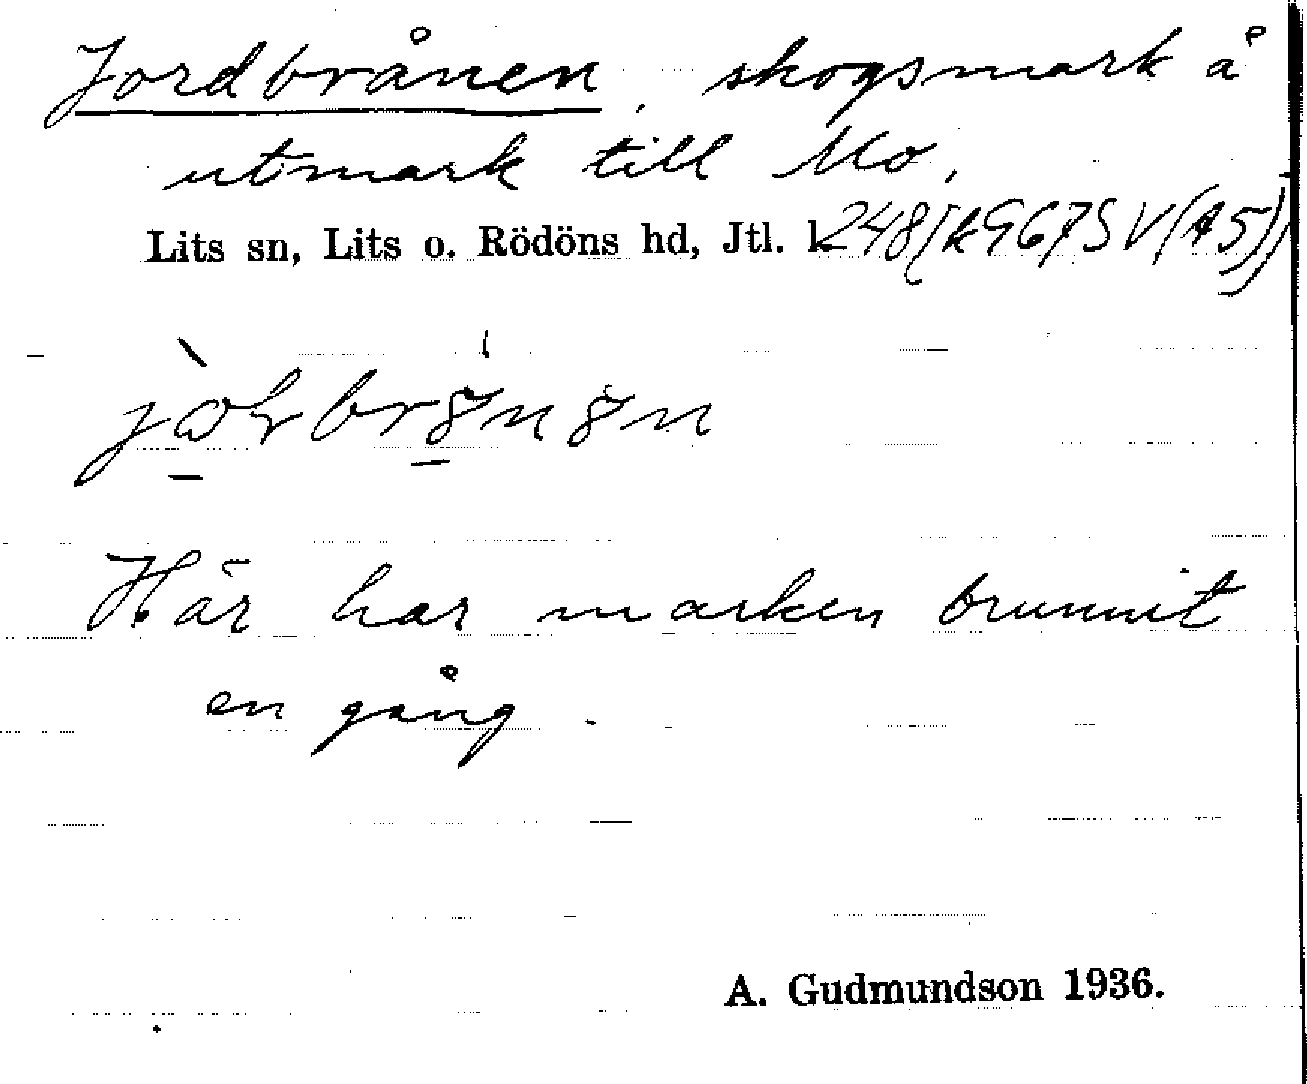 Jordbrånen, skogsmark å
utmark till Mo.
Lits sn, Lits o. Rödöns hd, Jtl. l.
Här har marken brunnit
en gång.
A. Gudmundson 1936.